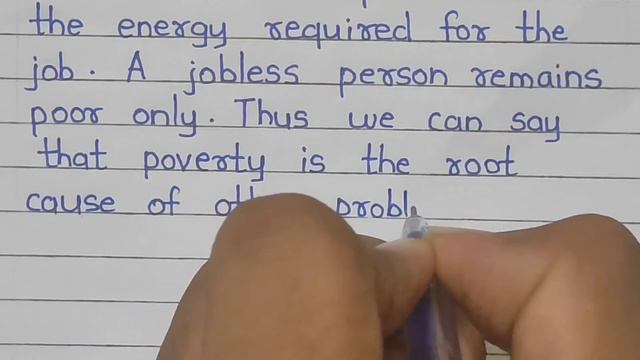 the energy required for the
job. A jobless person remains
poor only. Thus we can say
that poverty is the root
cause of probl